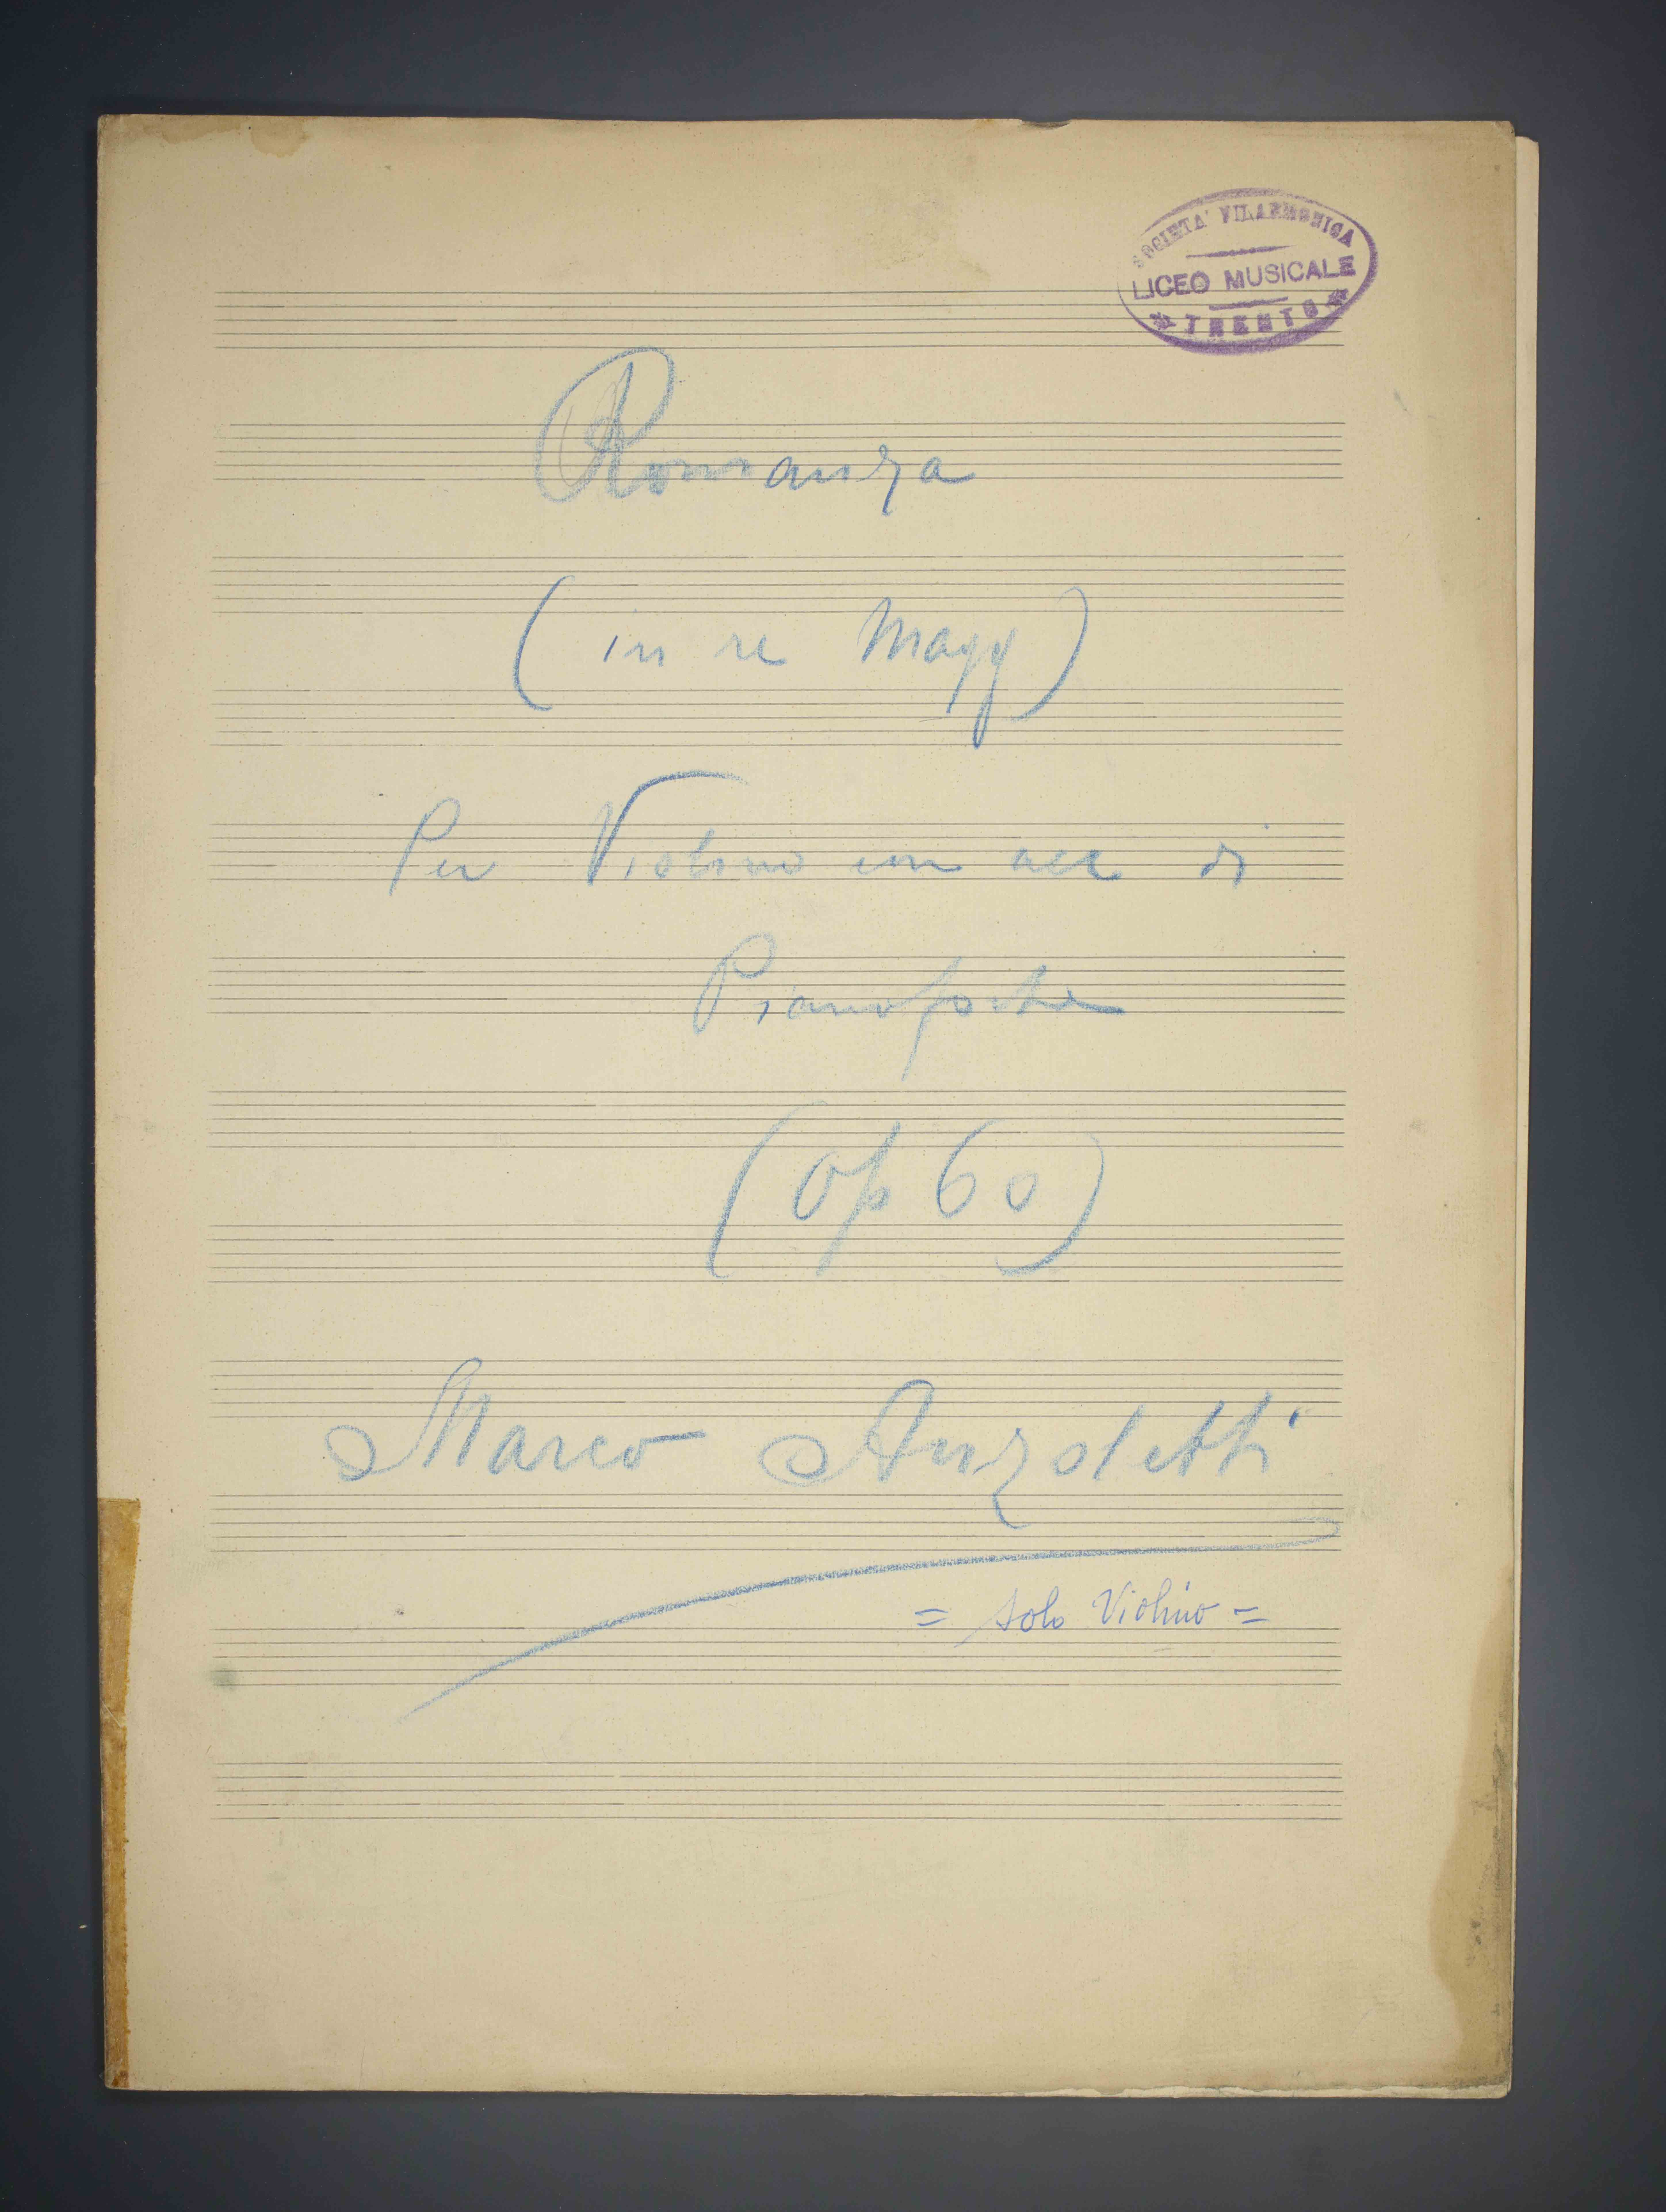 SOCIETA' FILARMONICA
LICEO MUSICALE
TRENTO
Romanza
(in re Magg)
Per Violino con acc di
Pianoforte
(Op 60)
Marco Anzoletti
= solo Violino =